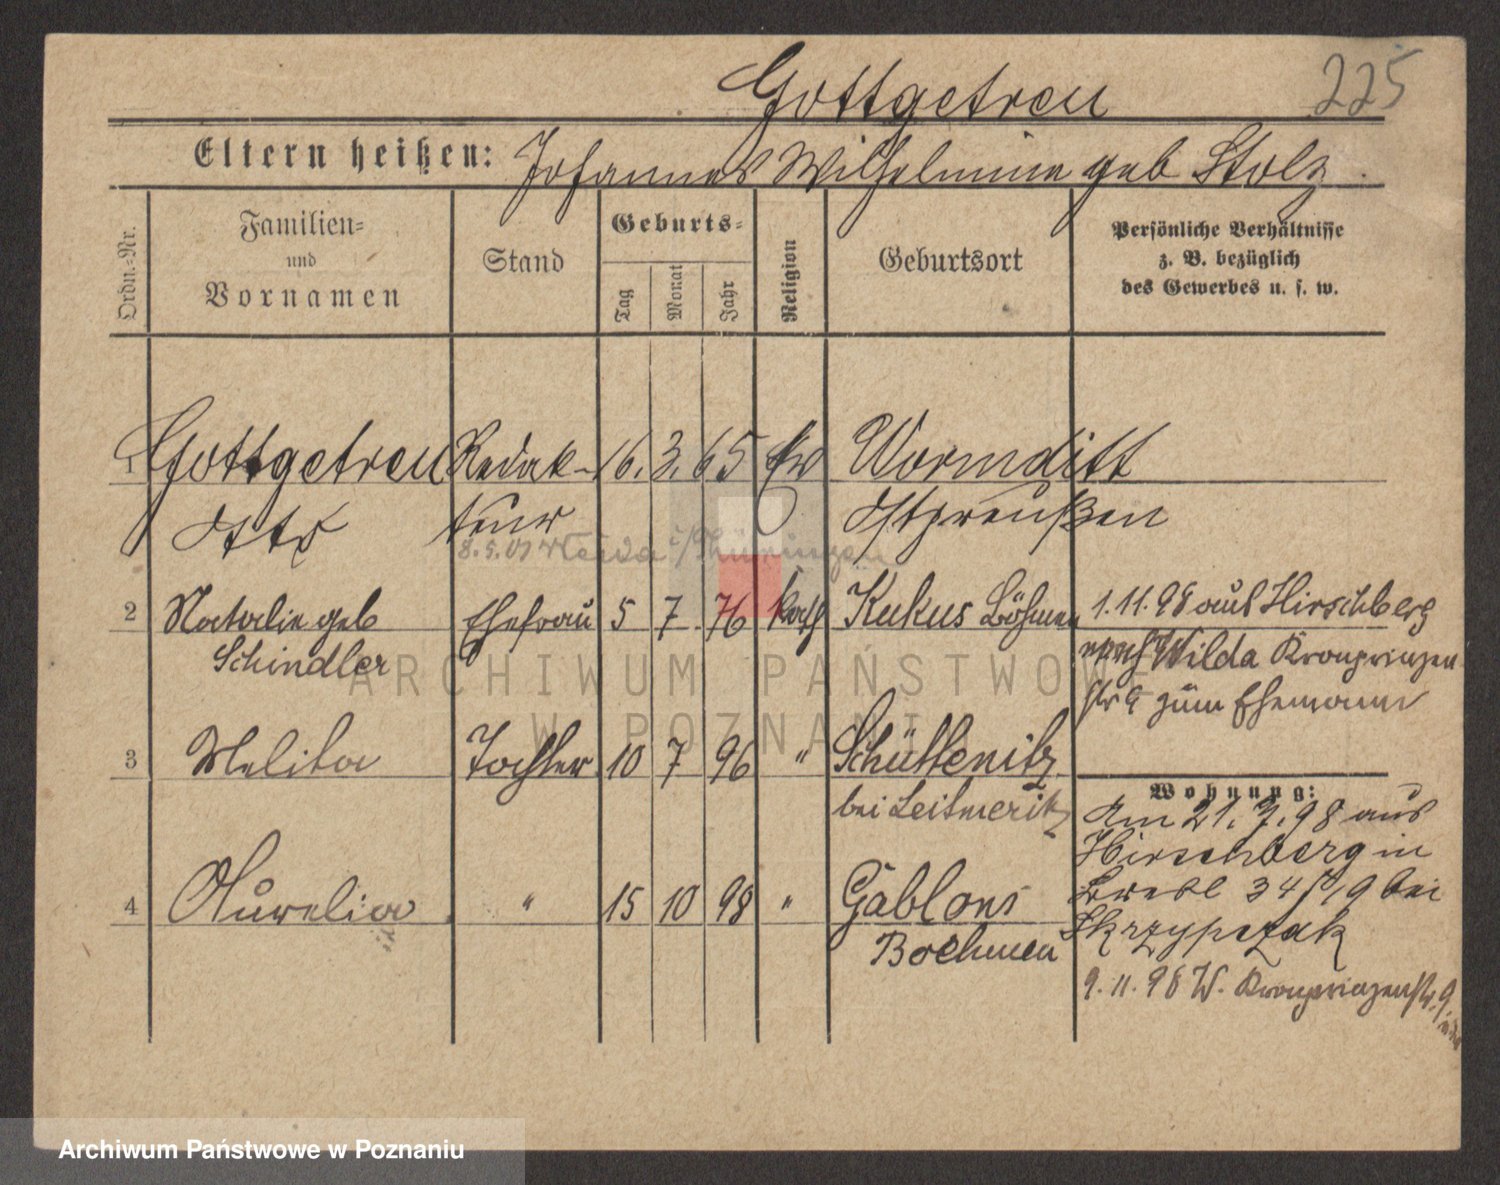 Gottgetreu 225
Eltern heißen: Johannes Wilhelmine geb Stolz.
Ordn.-Nr. Familien- und Vornamen Stand Geburts- Tag Monat Jahr Religion Geburtsort Persönliche Verhältnisse z. B. bezüglich des Gewerbes u. s. w.
1 Gottgetreu Redak- 16. 3. 65 Ev Wormditt
Otto teur Ostpreußen
8.5.01 Weida i/Thüringen
2 Natalie geb Ehefrau 5 7. 76 kath Kukus Böhmen 1.11.98 aus Hirschberg
Schindler nach Wilda Kronprinzen
str 9 zum Ehemann
3 Melita Tochter 10 7 96 " Schüttenitz
Wohnung:
bei Leitmeritz Am 21.7.98 aus
Hirschberg in
4 Aurelia " 15 10 98 " Gablons 34 19 bei
Boehmen Skrzypczak
9.11.98 W. Kronprinzenstr. 9.
ARCHIWUM PAŃSTWOWE
W POZNANIU
Archiwum Państwowe w Poznaniu